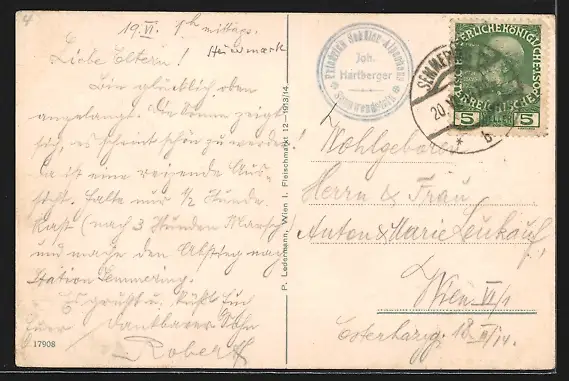 4
19. VI. 1h mittags.
Heidmark
Liebe Eltern!
Bin glücklich oben
angelangt. Die Sonne zeigt
sich, es scheint schön zu werden!
Da ist eine reizende Aus-
sicht. Halte nur 1/2 Stunde
Rast (nach 3 Stunden Marsch)
und mache den Abstieg nach
Station Semmering.
Es grüsst u. küßt Euch
Euer dankbarer Sohn
Robert
17908
P. Ledermann, Wien I. Fleischmarkt 12 — 1913/14.
Friedrich Schüler-Alpenhaus
Joh.
Hartberger
Sonnwendstein
SEMMERING
20.
* b
KAISERLICHE KÖNIGLICHE ÖSTERREICHISCHE POST
5 HELLER 5
Wohlgeboren
Herrn & Frau
Anton & Marie Leukauf
Wien VI/1
Esterházyg. 18 II/14.